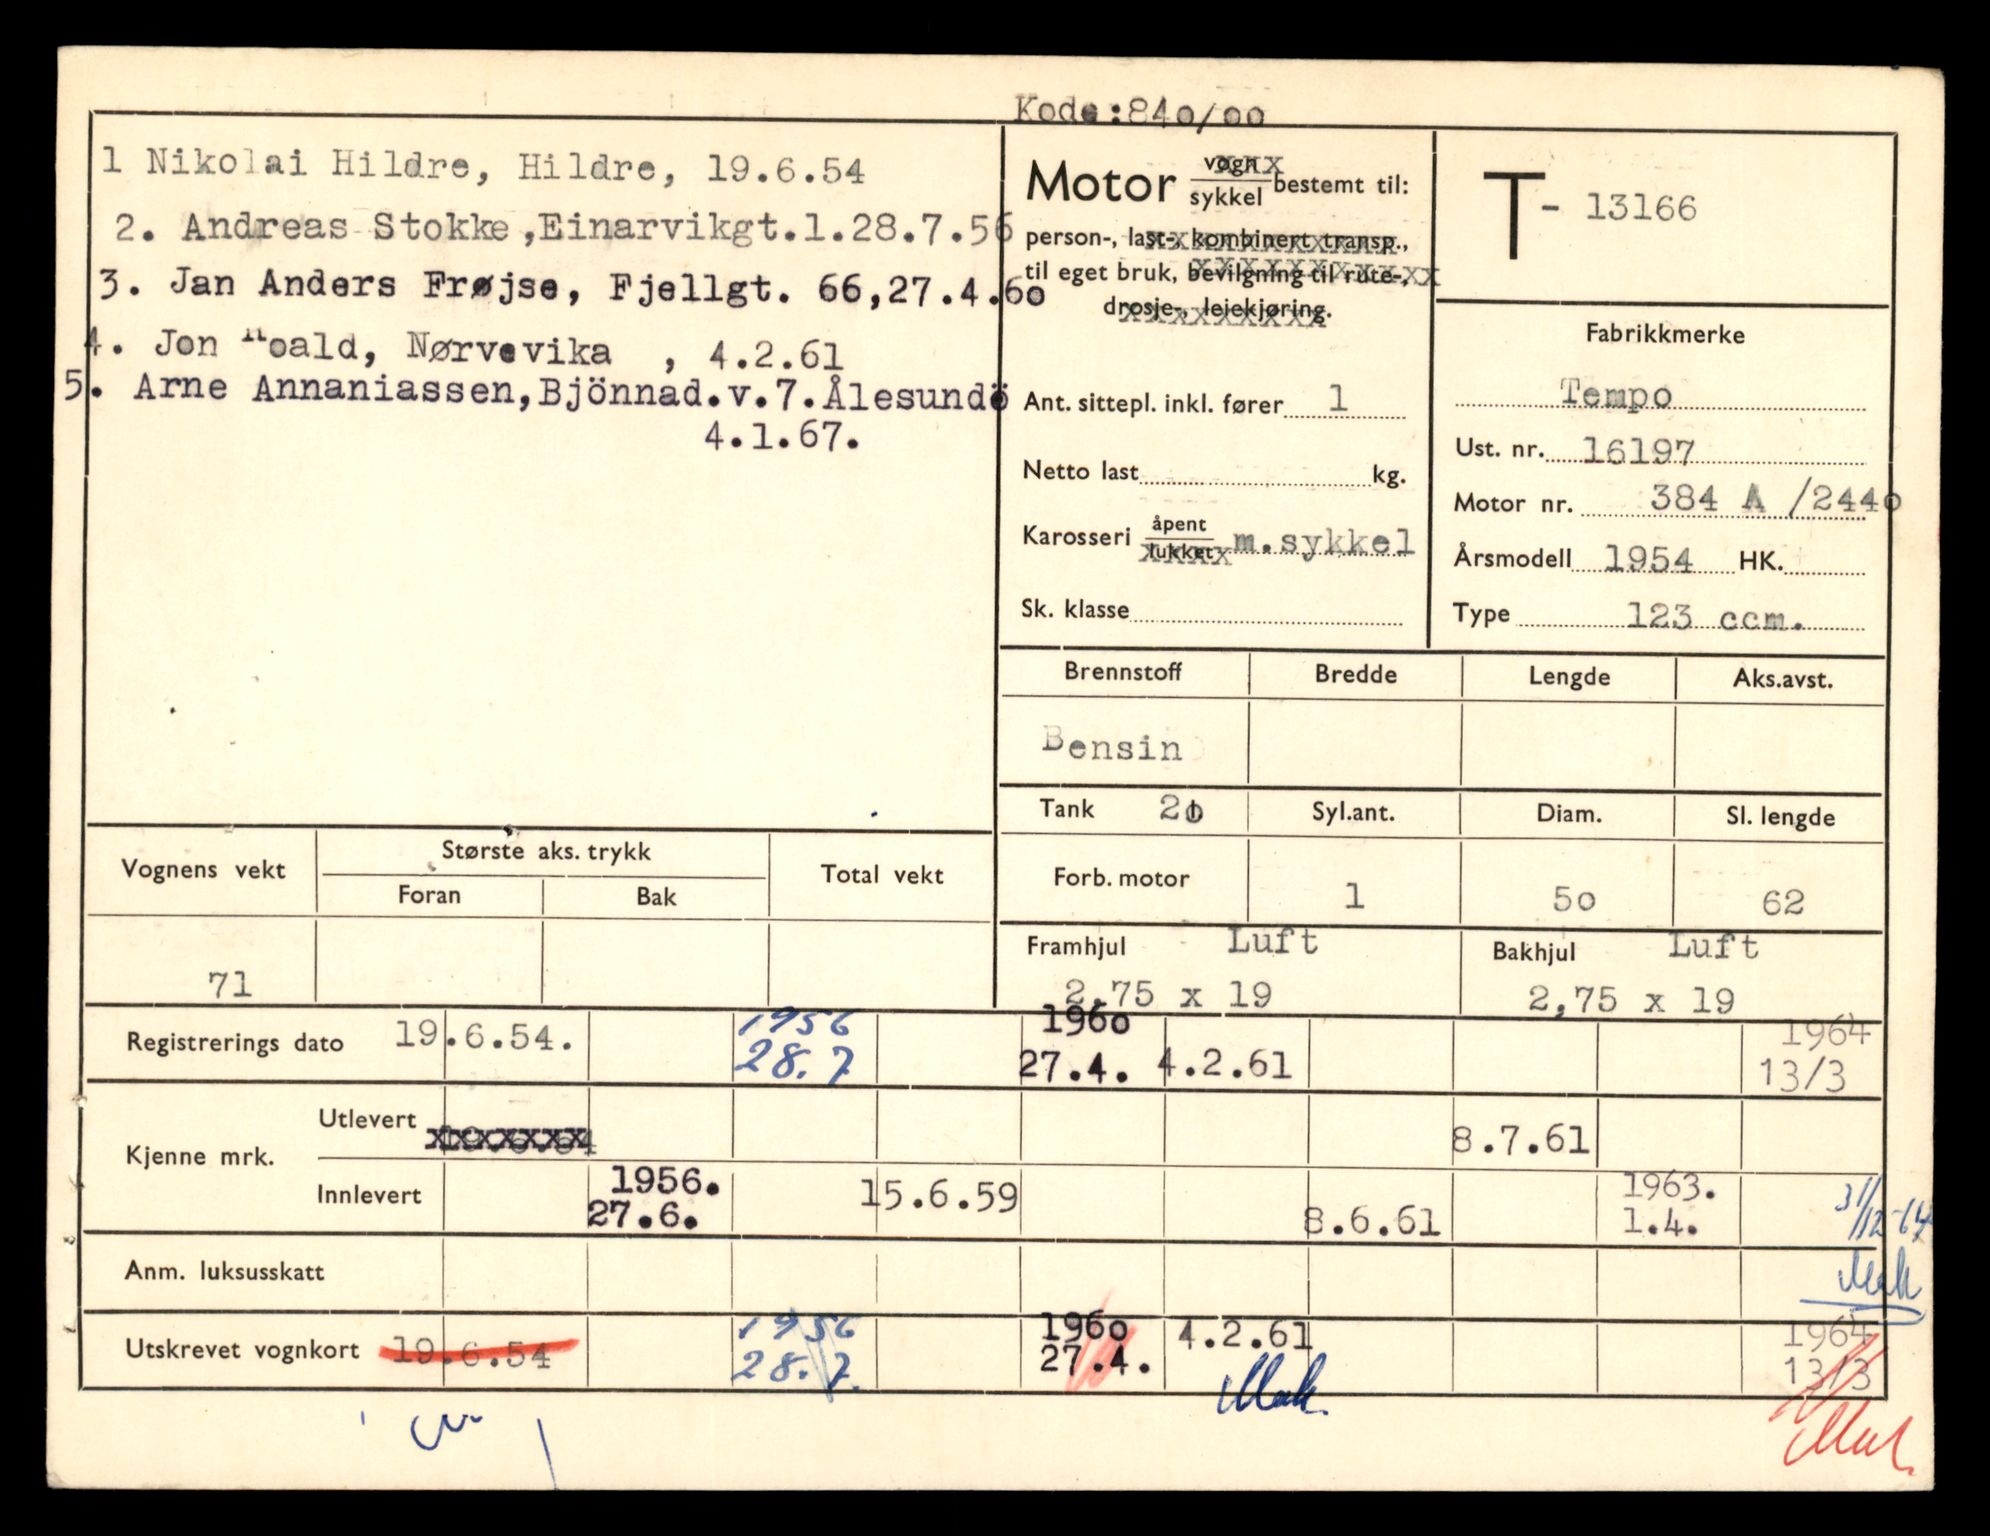 Kode:840/00
1 Nikolai Hildre, Hildre, 19.6.54
2. Andreas Stokke,Einarvikgt.1.28.7.56
3. Jan Anders Frøjse, Fjellgt. 66,27.4.60
4. Jon Roald, Nørvevika , 4.2.61
5. Arne Annaniassen,Bjönnad.v.7.Ålesund
4.1.67.
Motor vogn/sykkel bestemt til:
person-, last-, kombinert transp.,
til eget bruk, bevilgning til rute-,
drosje-, leiekjøring.
Ant. sittepl. inkl. fører 1
Netto last kg.
Karosseri åpent/lukket m.sykkel
Sk. klasse
T- 13166
Fabrikkmerke
Tempo
Ust. nr. 16197
Motor nr. 384 A /2440
Årsmodell 1954 HK.
Type 123 ccm.
Brennstoff Bredde Lengde Aks.avst.
Bensin
Tank 20 Syl.ant. Diam. Sl. lengde
Forb. motor 1 50 62
Framhjul Luft Bakhjul Luft
2,75 x 19 2,75 x 19
Vognens vekt Største aks. trykk Total vekt
Foran Bak
71
Registrerings dato 19.6.54. 1956 28.7 1960 27.4. 4.2.61 1964 13/3
Kjenne mrk. Utlevert 8.7.61
Innlevert 1956. 27.6. 15.6.59 8.6.61 1963. 1.4. 31/12-64
Anm. luksusskatt
Utskrevet vognkort 19.6.54 1956 28.7. 1960 27.4. 4.2.61 1964 13/3